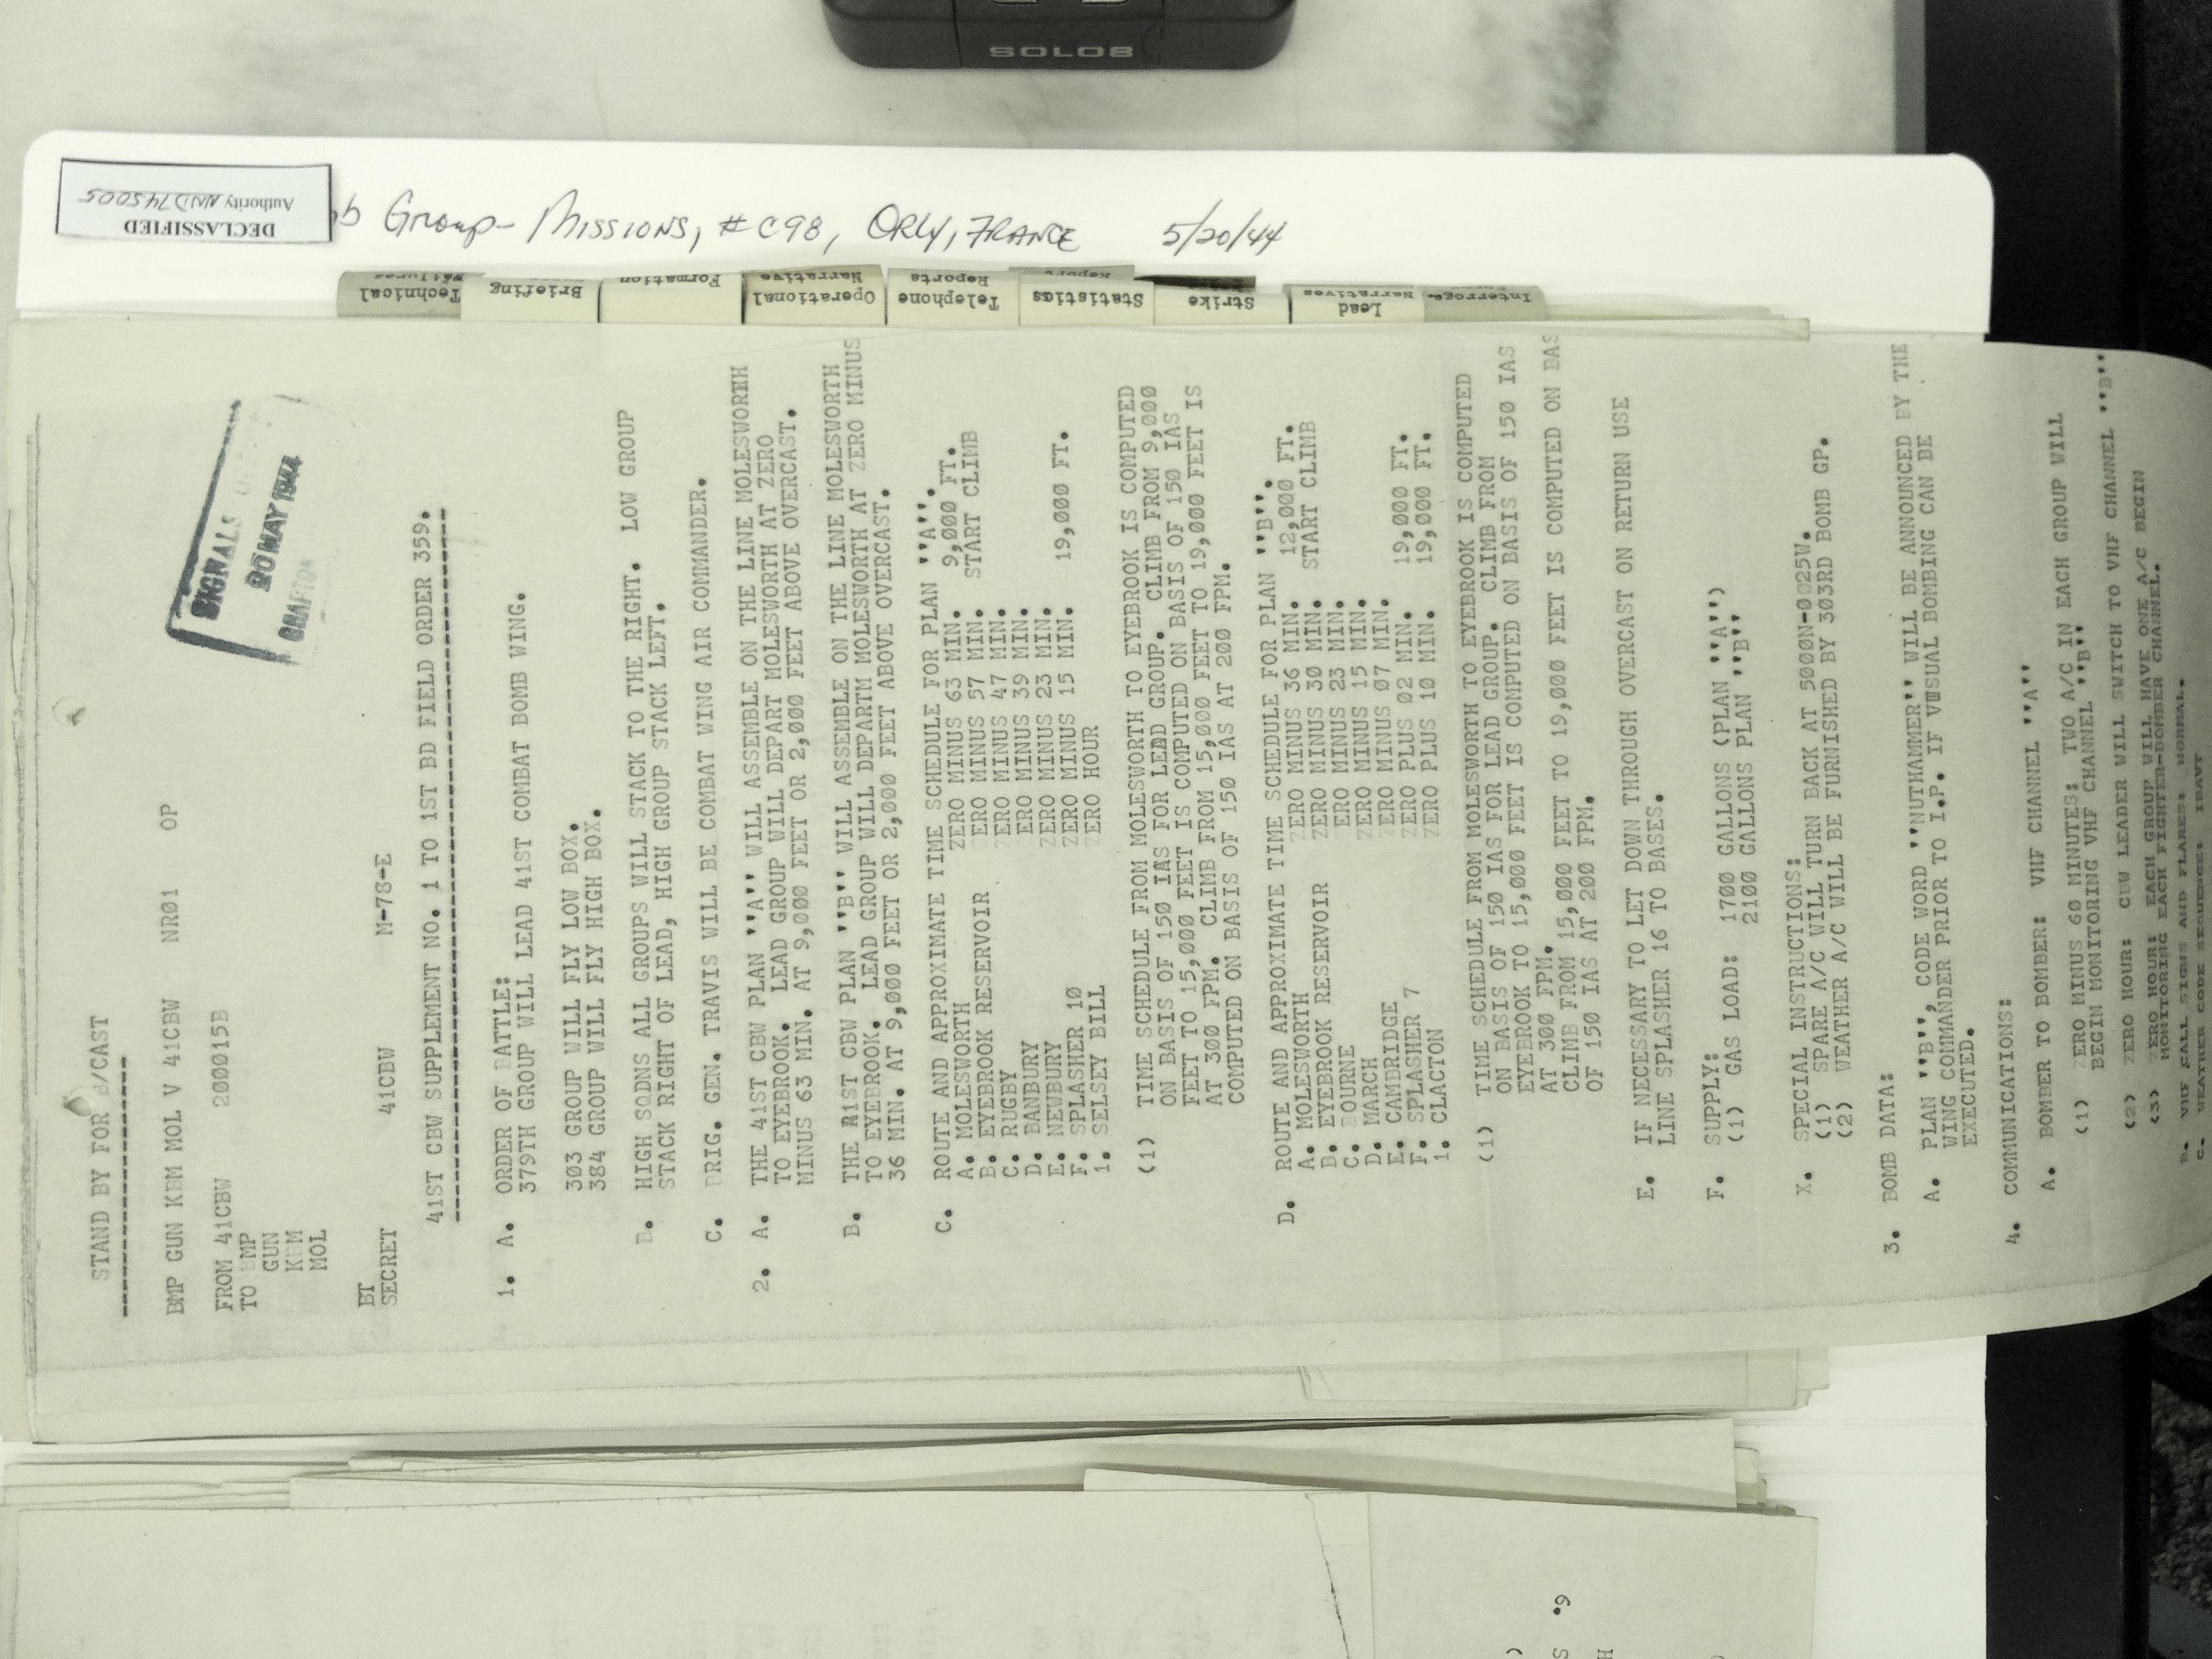 SOLO8
DECLASSIFIED
Authority NND745005
Group - Missions, #C98, ORLY, FRANCE 5/20/44
Technical
Briefing
Formation
Operational
Narrative
Telephone
Reports
Statistics
Strike
Lead
Narratives
Interroga-
SIGNALS
20 MAY 1944
GRAFTON
STAND BY FOR B/CAST
BMP GUN KBM MOL V 41CBW NR01 OP
FROM 41CBW 200015B
TO BMP
GUN
KBM
MOL
BT
SECRET 41CBW M-78-E
41ST CBW SUPPLEMENT NO. 1 TO 1ST BD FIELD ORDER 359.
1. A. ORDER OF BATTLE:
379TH GROUP WILL LEAD 41ST COMBAT BOMB WING.
303 GROUP WILL FLY LOW BOX.
384 GROUP WILL FLY HIGH BOX.
B. HIGH SQDNS ALL GROUPS WILL STACK TO THE RIGHT. LOW GROUP
STACK RIGHT OF LEAD, HIGH GROUP STACK LEFT.
C. BRIG. GEN. TRAVIS WILL BE COMBAT WING AIR COMMANDER.
2. A. THE 41ST CBW PLAN ''A'' WILL ASSEMBLE ON THE LINE MOLESWORTH
TO EYEBROOK. LEAD GROUP WILL DEPART MOLESWORTH AT ZERO
MINUS 63 MIN. AT 9,000 FEET OR 2,000 FEET ABOVE OVERCAST.
B. THE 41ST CBW PLAN ''B'' WILL ASSEMBLE ON THE LINE MOLESWORTH
TO EYEBROOK. LEAD GROUP WILL DEPARTM MOLESWORTH AT ZERO MINUS
36 MIN. AT 9,000 FEET OR 2,000 FEET ABOVE OVERCAST.
C. ROUTE AND APPROXIMATE TIME SCHEDULE FOR PLAN ''A''.
A. MOLESWORTH ZERO MINUS 63 MIN. 9,000 FT.
B. EYEBROOK RESERVOIR ZERO MINUS 57 MIN. START CLIMB
C. RUGBY ZERO MINUS 47 MIN.
D. BANBURY ZERO MINUS 39 MIN.
E. NEWBURY ZERO MINUS 23 MIN.
F. SPLASHER 10 ZERO MINUS 15 MIN. 19,000 FT.
1. SELSEY BILL ZERO HOUR
(1) TIME SCHEDULE FROM MOLESWORTH TO EYEBROOK IS COMPUTED
ON BASIS OF 150 IAS FOR LEAD GROUP. CLIMB FROM 9,000
FEET TO 15,000 FEET IS COMPUTED ON BASIS OF 150 IAS
AT 300 FPM. CLIMB FROM 15,000 FEET TO 19,000 FEET IS
COMPUTED ON BASIS OF 150 IAS AT 200 FPM.
D. ROUTE AND APPROXIMATE TIME SCHEDULE FOR PLAN ''B''.
A. MOLESWORTH ZERO MINUS 36 MIN. 12,000 FT.
B. EYEBROOK RESERVOIR ZERO MINUS 30 MIN. START CLIMB
C. BOURNE ZERO MINUS 23 MIN.
D. MARCH ZERO MINUS 15 MIN.
E. CAMBRIDGE ZERO MINUS 07 MIN.
F. SPLASHER 7 ZERO PLUS 02 MIN. 19,000 FT.
1. CLACTON ZERO PLUS 10 MIN. 19,000 FT.
(1) TIME SCHEDULE FROM MOLESWORTH TO EYEBROOK IS COMPUTED
ON BASIS OF 150 IAS FOR LEAD GROUP. CLIMB FROM
EYEBROOK TO 15,000 FEET IS COMPUTED ON BASIS OF 150 IAS
AT 300 FPM.
CLIMB FROM 15,000 FEET TO 19,000 FEET IS COMPUTED ON BAS
OF 150 IAS AT 200 FPM.
E. IF NECESSARY TO LET DOWN THROUGH OVERCAST ON RETURN USE
LINE SPLASHER 16 TO BASES.
F. SUPPLY:
(1) GAS LOAD: 1700 GALLONS (PLAN ''A'')
2100 GALLONS PLAN ''B''
X. SPECIAL INSTRUCTIONS:
(1) SPARE A/C WILL TURN BACK AT 5000N-0025W.
(2) WEATHER A/C WILL BE FURNISHED BY 303RD BOMB GP.
3. BOMB DATA:
A. PLAN ''B'', CODE WORD ''NUTHAMMER'' WILL BE ANNOUNCED BY THE
WING COMMANDER PRIOR TO I.P. IF VUSUAL BOMBING CAN BE
EXECUTED.
4. COMMUNICATIONS:
A. BOMBER TO BOMBER: VHF CHANNEL ''A''
(1) ZERO MINUS 60 MINUTES: TWO A/C IN EACH GROUP WILL
BEGIN MONITORING VHF CHANNEL ''B''
(2) ZERO HOUR: CBW LEADER WILL SWITCH TO VHF CHANNEL ''B''
(3) ZERO HOUR: EACH GROUP WILL HAVE ONE A/C BEGIN
MONITORING EACH FIGHTER-BOMBER CHANNEL.
B. VHF CALL SIGNS AND FLARES: NORMAL.
C. WEATHER CODE SEQUENCE: